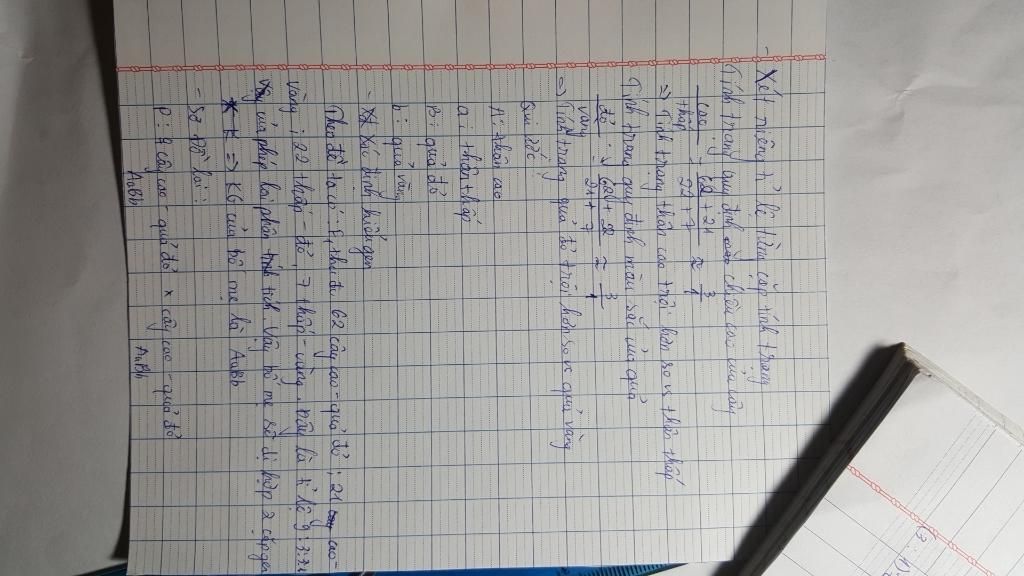 - Xét riêng tỉ lệ từng cặp tính trạng
Tính trạng qui định chiều cao của cây
cao / thấp : 62 + 21 / 22 + 7 ≈ 3 / 1
=> Tính trạng thân cao trội hoàn so vs thân thấp
Tính trạng quy định màu sắc của quả
đỏ / vàng : 62 + 22 / 21 + 7 ≈ 3 / 1
=> Tính trạng quả đỏ trội hoàn so vs quả vàng
Qui ước:
A: thân cao
a: thân thấp
B: quả đỏ
b: quả vàng
- Xác định kiểu gen
Theo đề ta có F1 thu đc 62 cây cao - quả đỏ ; 21 cao -
vàng ; 22 thấp - đỏ, 7 thấp - vàng. Đây là tỉ lệ 9:3:3:1
của phép lai phân tích. Vậy bố mẹ sẽ dị hợp 2 cặp gen
=> KG của bố mẹ là AaBb
- Sơ đồ lai:
P: cây cao - quả đỏ x cây cao - quả đỏ
AaBb AaBb
(3:1)